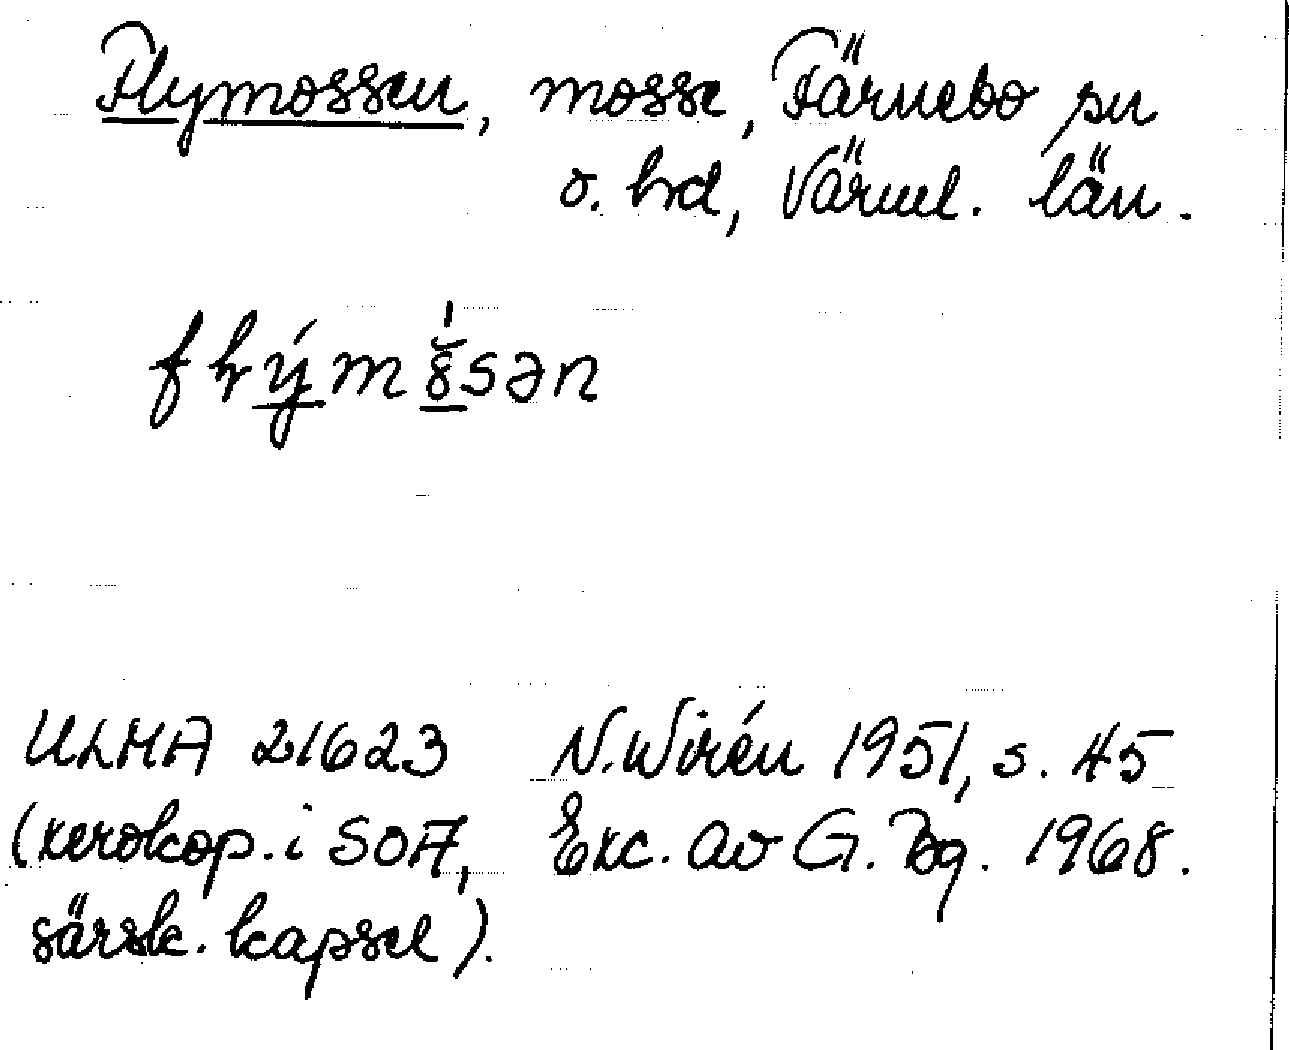 Flymossen, mosse, Färnebo sn
o. hd, Värml. län.
ULMA 21623 N. Wirén 1951, s. 45
(xerokop. i SOA, Exc. av G. Bg. 1968.
särsk. kapsel).